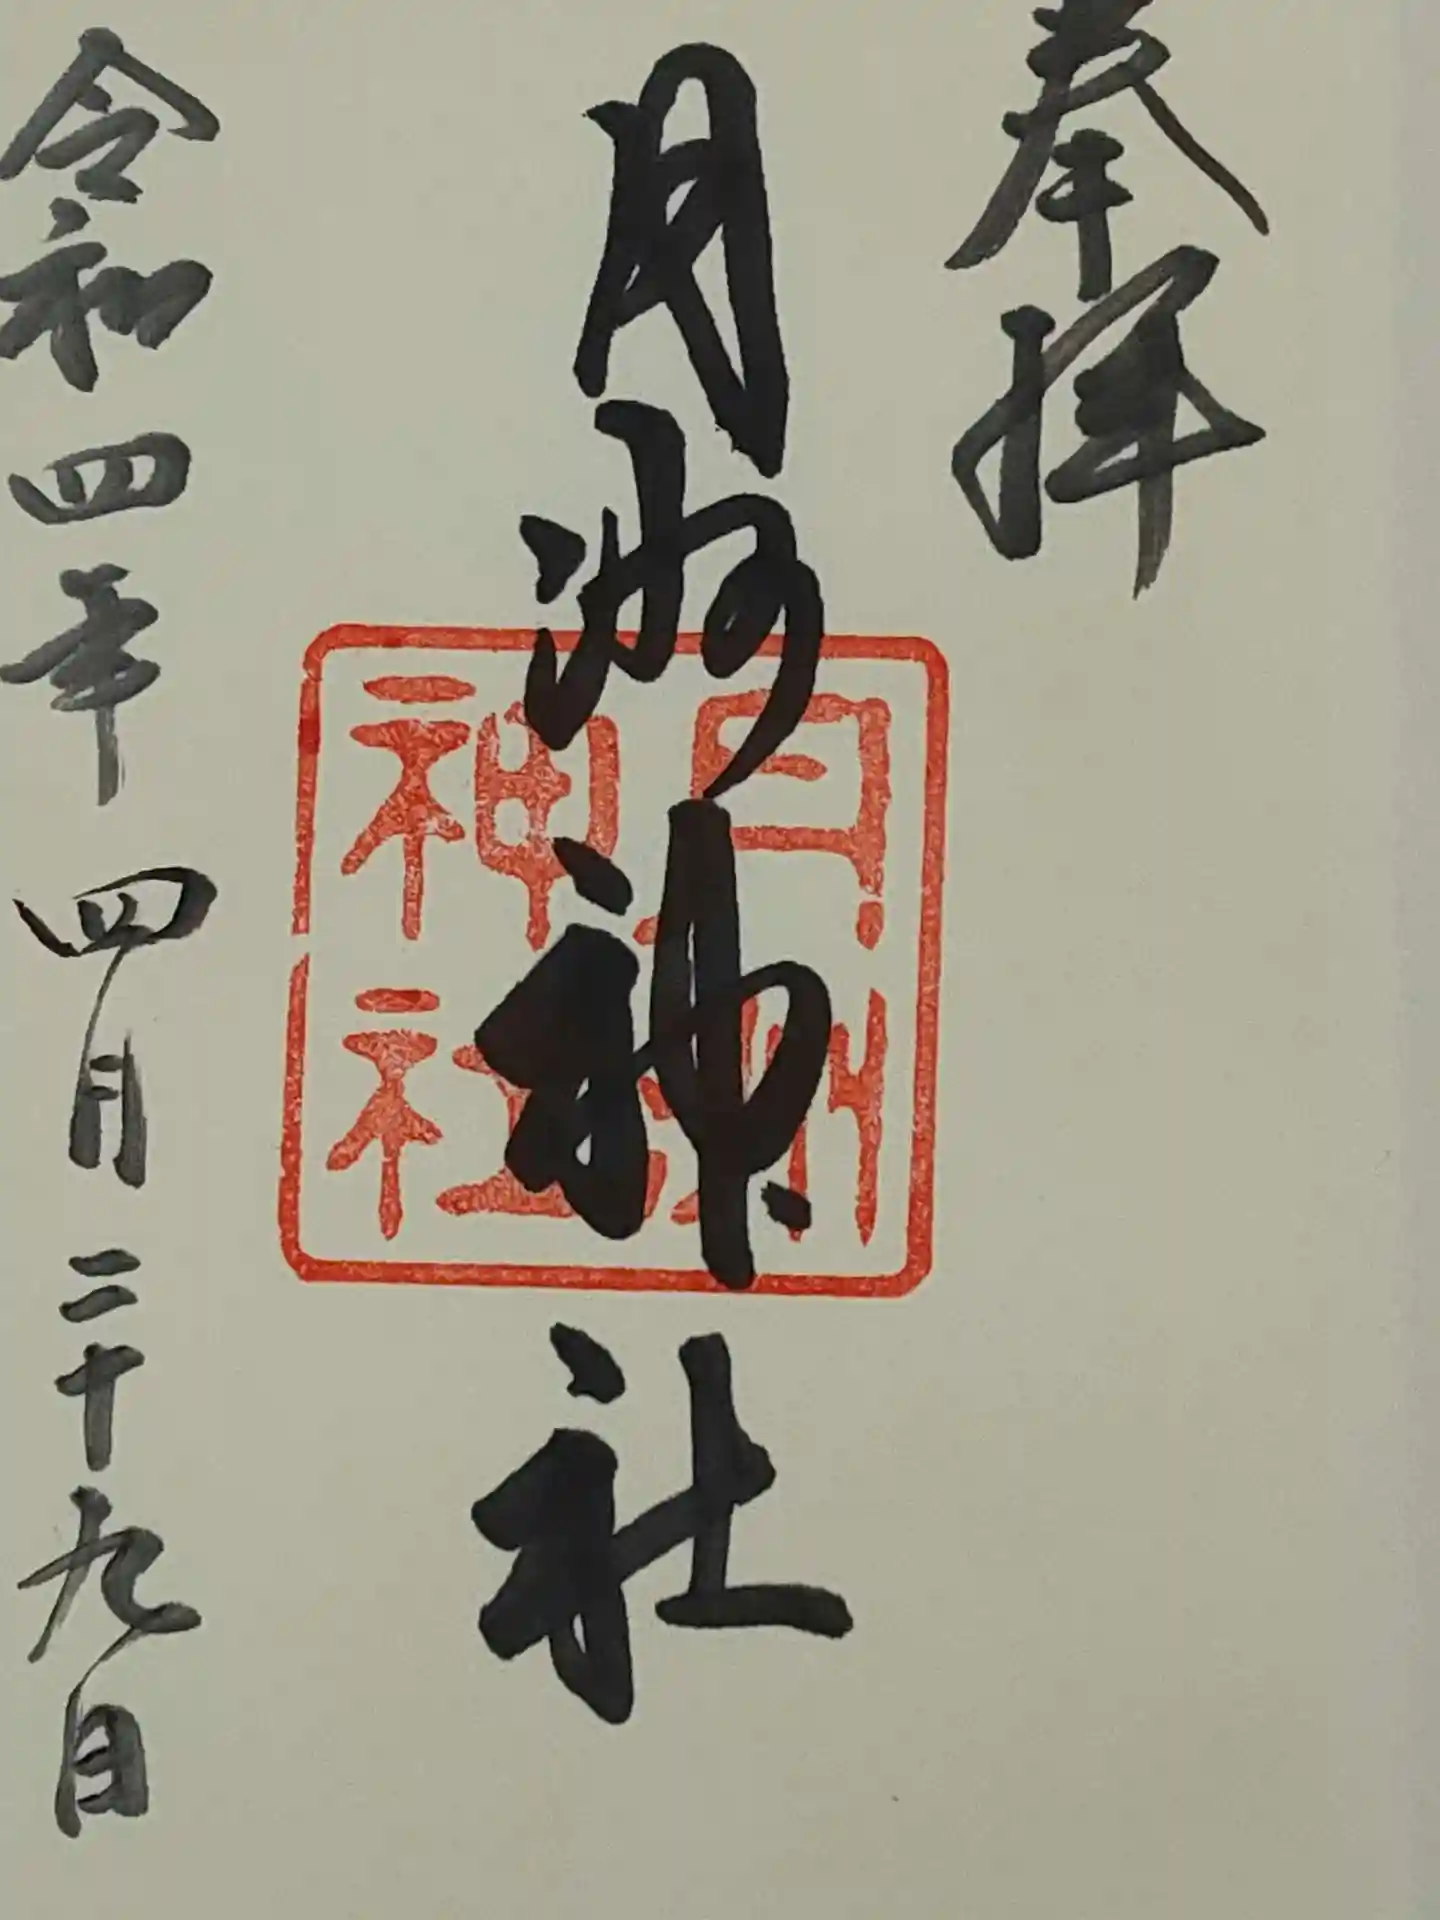 奉拝
月洲神社
月洲神社
令和四年四月二十九日